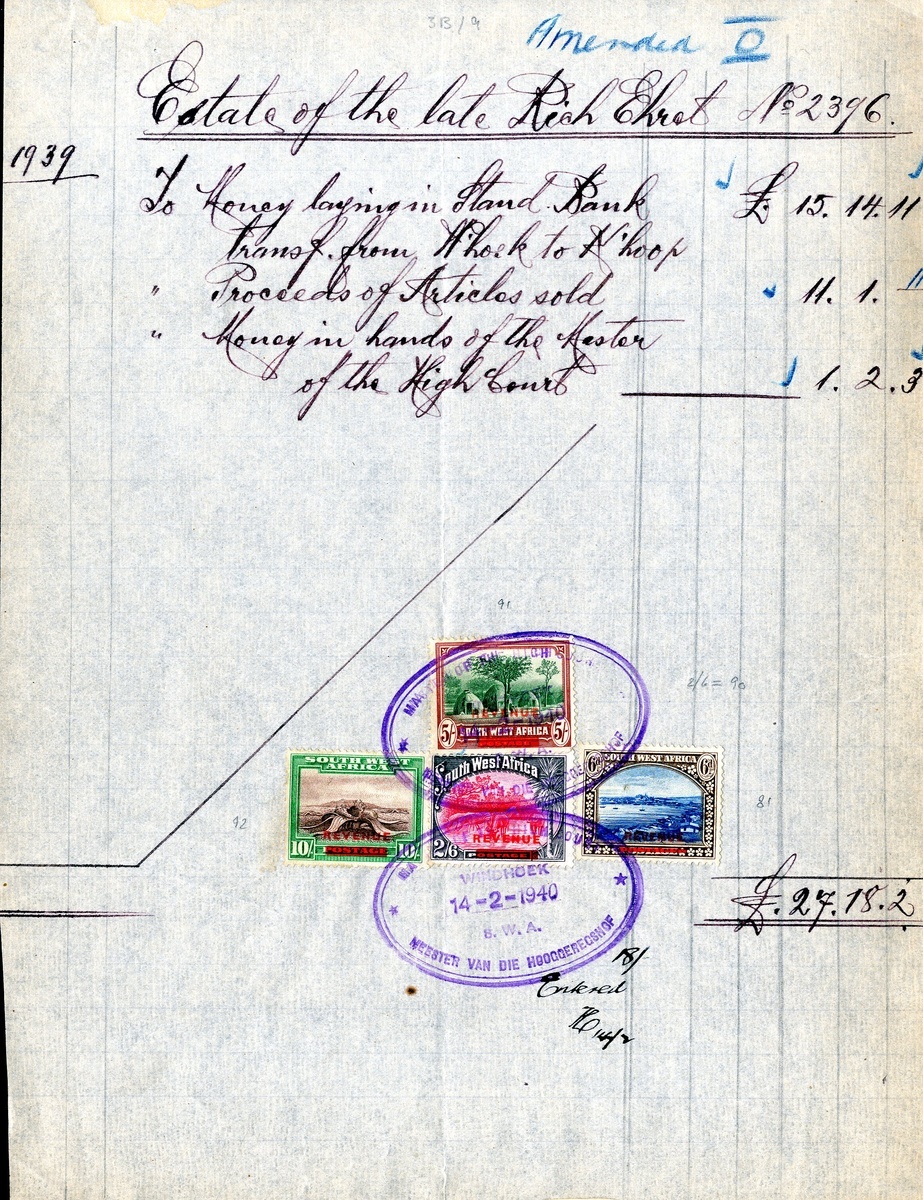 3B/9
Amended O
Estate of the late Rich Ehret No 2396.
1939
To Money laying in Stand. Bank £. 15. 14. 11
transf. from W'hoek to K'hoop
" Proceeds of Articles sold 11. 1. –
" Money in hands of the Master
of the High Court 1. 2. 3
91
2/6 = 90
REVENUE
5/- SOUTH WEST AFRICA 5/-
POSTAGE
SOUTH WEST AFRICA
REVENUE
10/- POSTAGE 10/-
South West Africa
REVENUE
2/6 POSTAGE
6d SOUTH WEST AFRICA 6d
REVENUE
92
81
WINDHOEK
14-2-1940
S. W. A.
MEESTER VAN DIE HOOGGEREGSHOF
£. 27. 18. 2
18/-
Entered
14/2